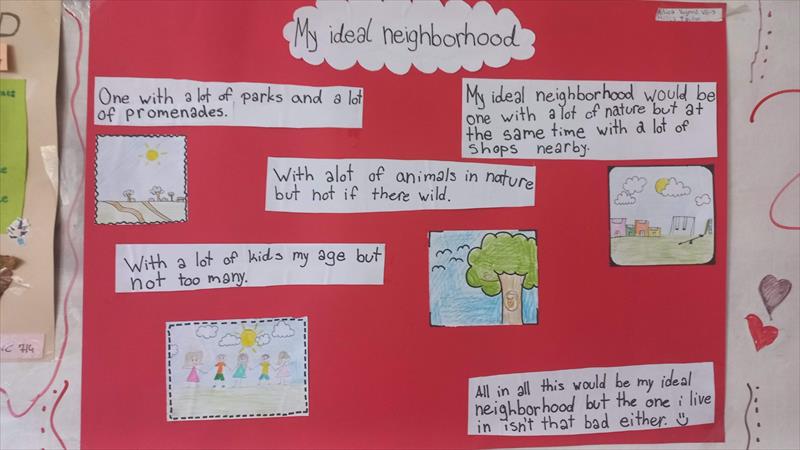 My ideal neighborhood
One with a lot of parks and a lot
of promenades.
My ideal neighborhood would be
one with a lot of nature but at
the same time with a lot of
shops nearby.
With alot of animals in nature
but not if there wild.
With a lot of kids my age but
not too many.
All in all this would be my ideal
neighborhood but the one i live
in isn't that bad either.